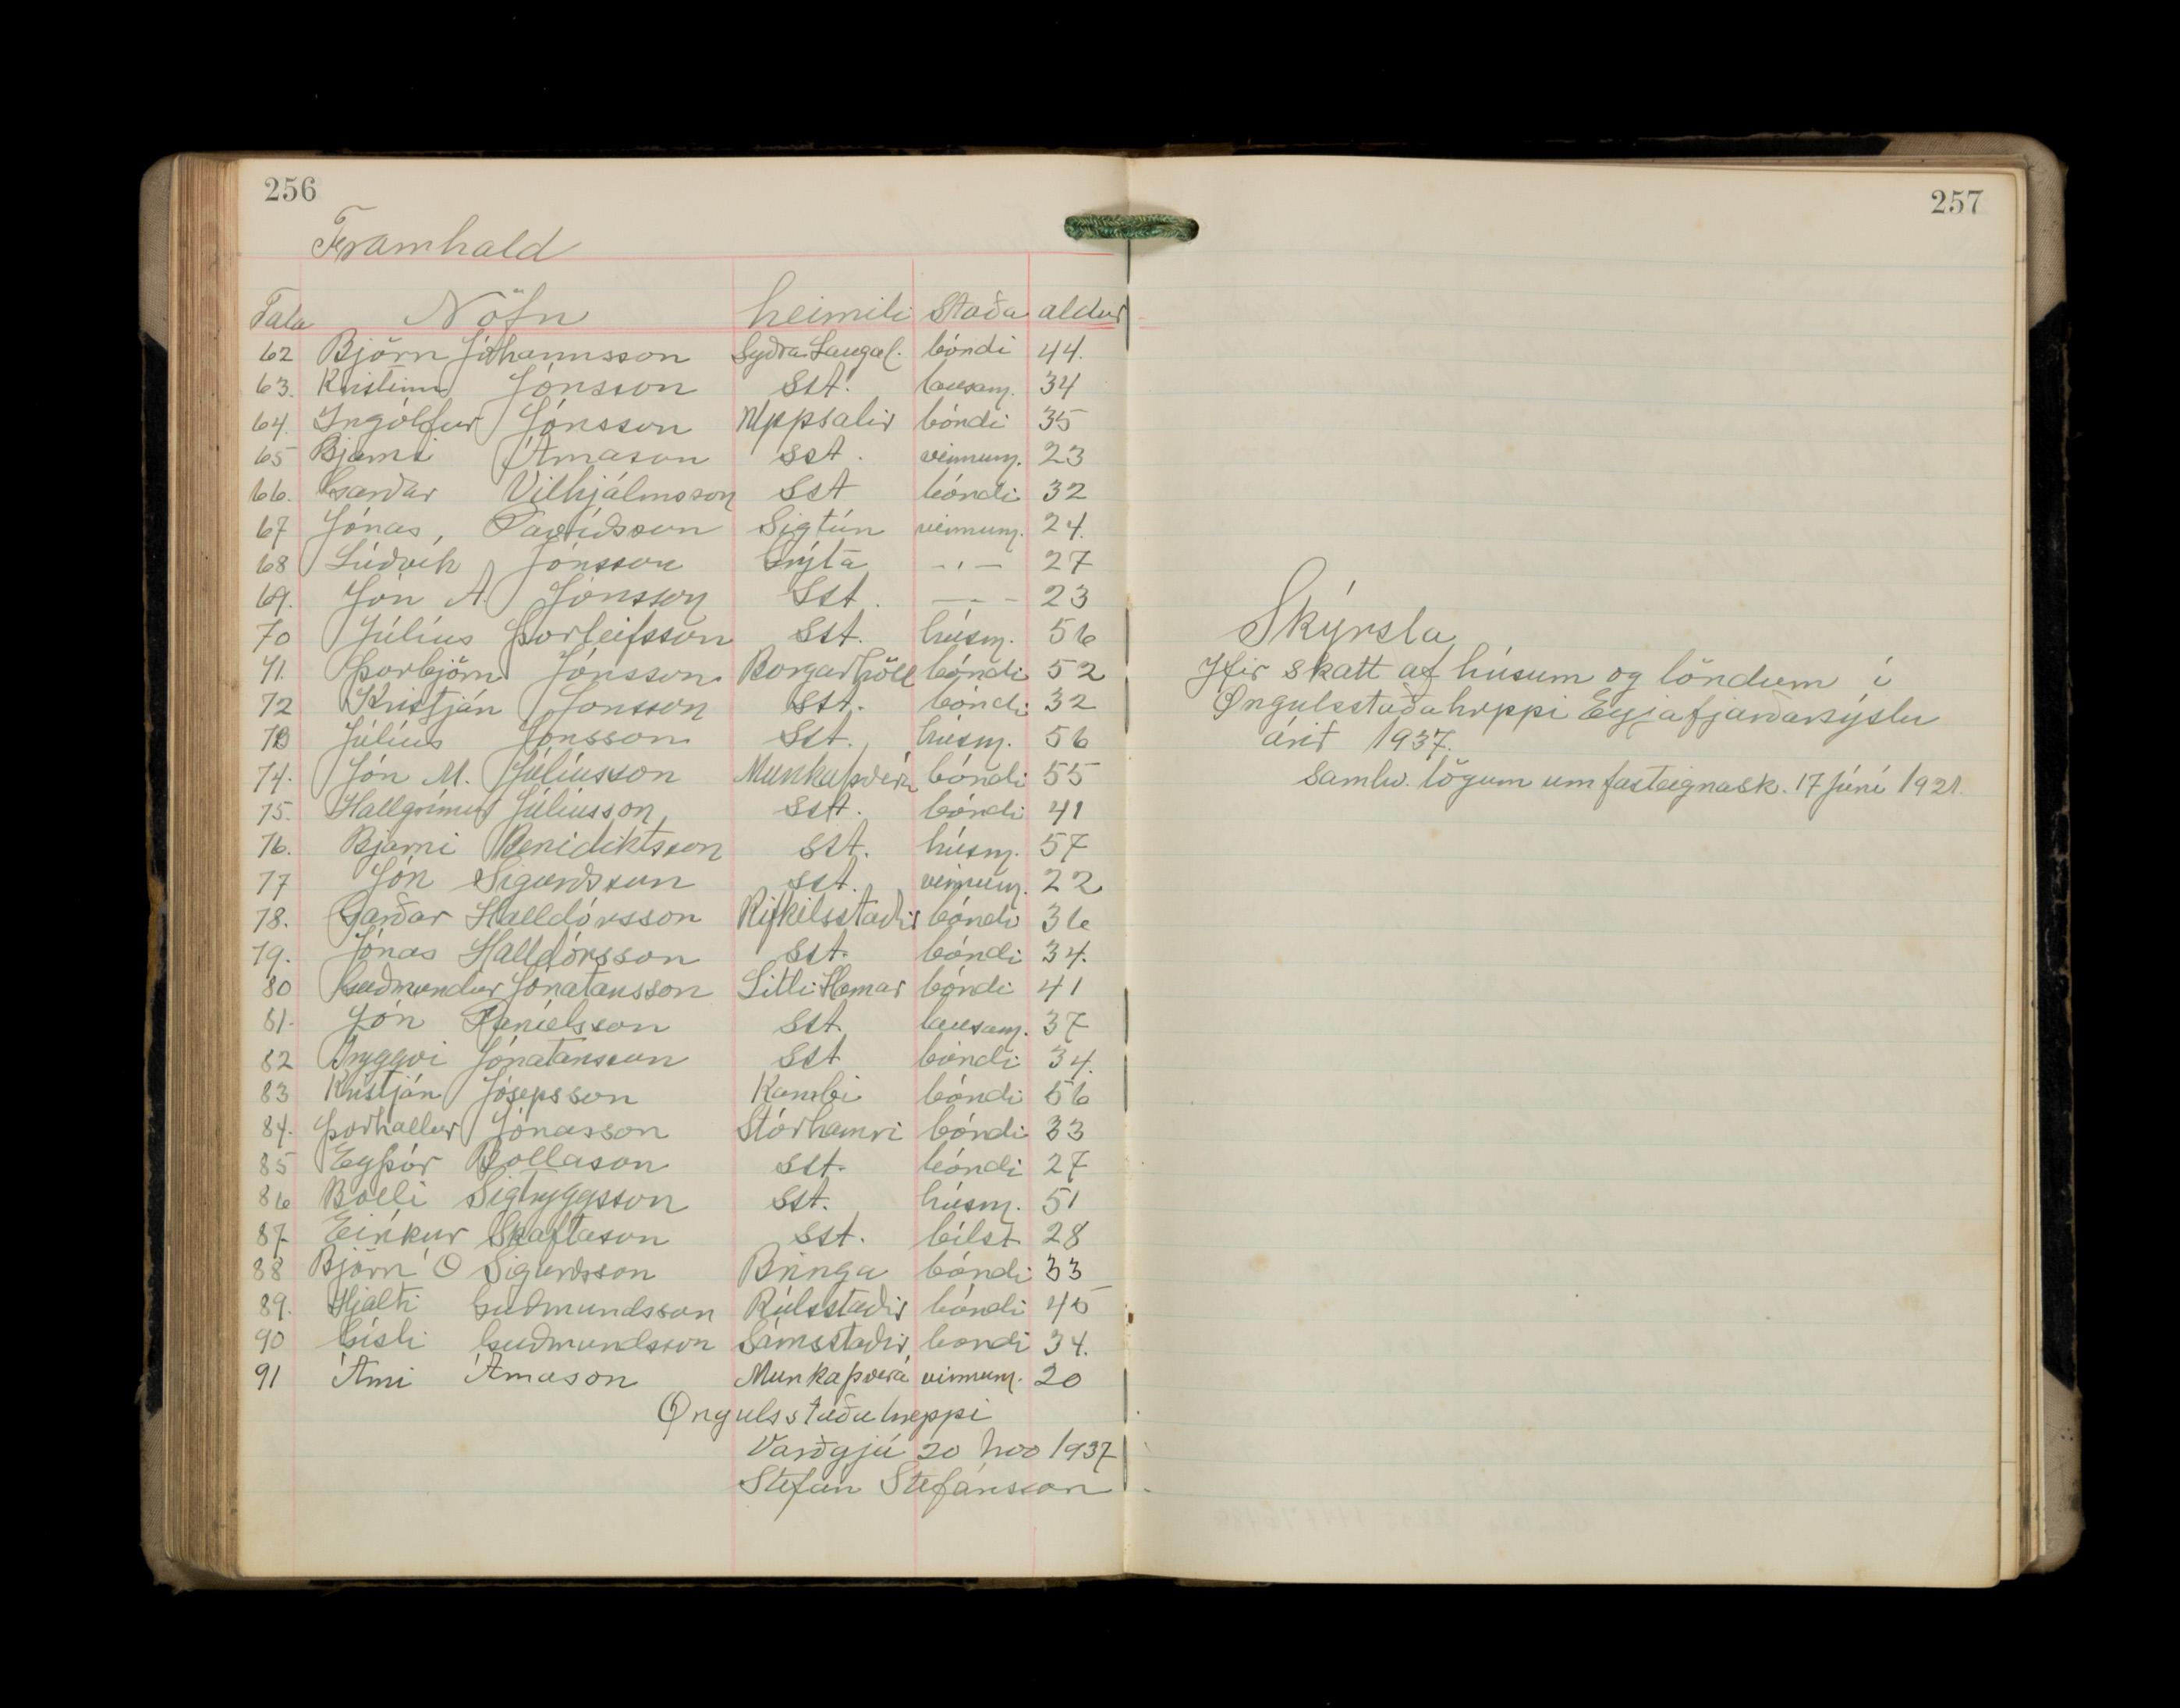 256
Framhald
Tala Nöfn heimili Staða aldur
62 Björn Jóhannsson Syðra Laugal. bóndi 44.
63. Kristinn Jónsson Sst. lausam. 34
64. Ingólfur Jónsson Uppsalir bóndi 35
65 Bjarni Árnason Sst. vinnum. 23
66. Garðar Vilhjálmsson Sst bóndi 32
67 Jónas Davíðsson Sigtún vinnum. 24.
68 Lúðvík Jónsson Grýta -,- 27
69. Jón A. Jónsson Sst. -,- 23
70 Júlíus Þorleifsson Sst. húsm. 56
71. Þorbjörn Jónsson Borgarhóll bóndi 52
72 Kristján Jónsson Sst. bóndi 32
73 Júlíus Jónsson Sst. húsm. 56
74. Jón M. Júlíusson Munkaþverá bóndi 55
75. Hallgrímur Júlíusson Sst. bóndi 41
76. Bjarni Benidiktsson Sst. húsm. 57
77 Jón Sigurðsson Sst. vinnum. 22
78. Garðar Halldórsson Rifkilsstaðir bóndi 36
79. Jónas Halldórsson Sst. bóndi 34.
80 Guðmundur Jónatansson Litli Hamar bóndi 41
81. Jón Daníelsson Sst. lausam. 37
82 Tryggvi Jónatansson Sst bóndi 34.
83 Kristján Jósepsson Kambi bóndi 56
84. Þórhallur Jónasson Stórhamri bóndi 33
85 Eyþór Bollason Sst. bóndi 27
86 Bolli Sigtryggsson Sst. húsm. 51
87 Eiríkur Skaftason Sst. bílst 28
88 Björn O Sigurðsson Bringa bóndi 33
89. Hjalti Guðmundsson Rútsstaðir bóndi 45
90 Gísli Guðmundsson Sámsstaðir bondi 34.
91 Árni Árnason Munkaþverá vinnum. 20
Öngulsstaðahreppi
Varðgjá 20 nóv 1937
Stefán Stefánsson
257
Skýrsla
Yfir skatt af húsum og löndum í
Öngulsstaðahrppi Eyjafjarðarsýslu
árið 1937.
samkv. lögum um fasteignask. 17 júní 1921.